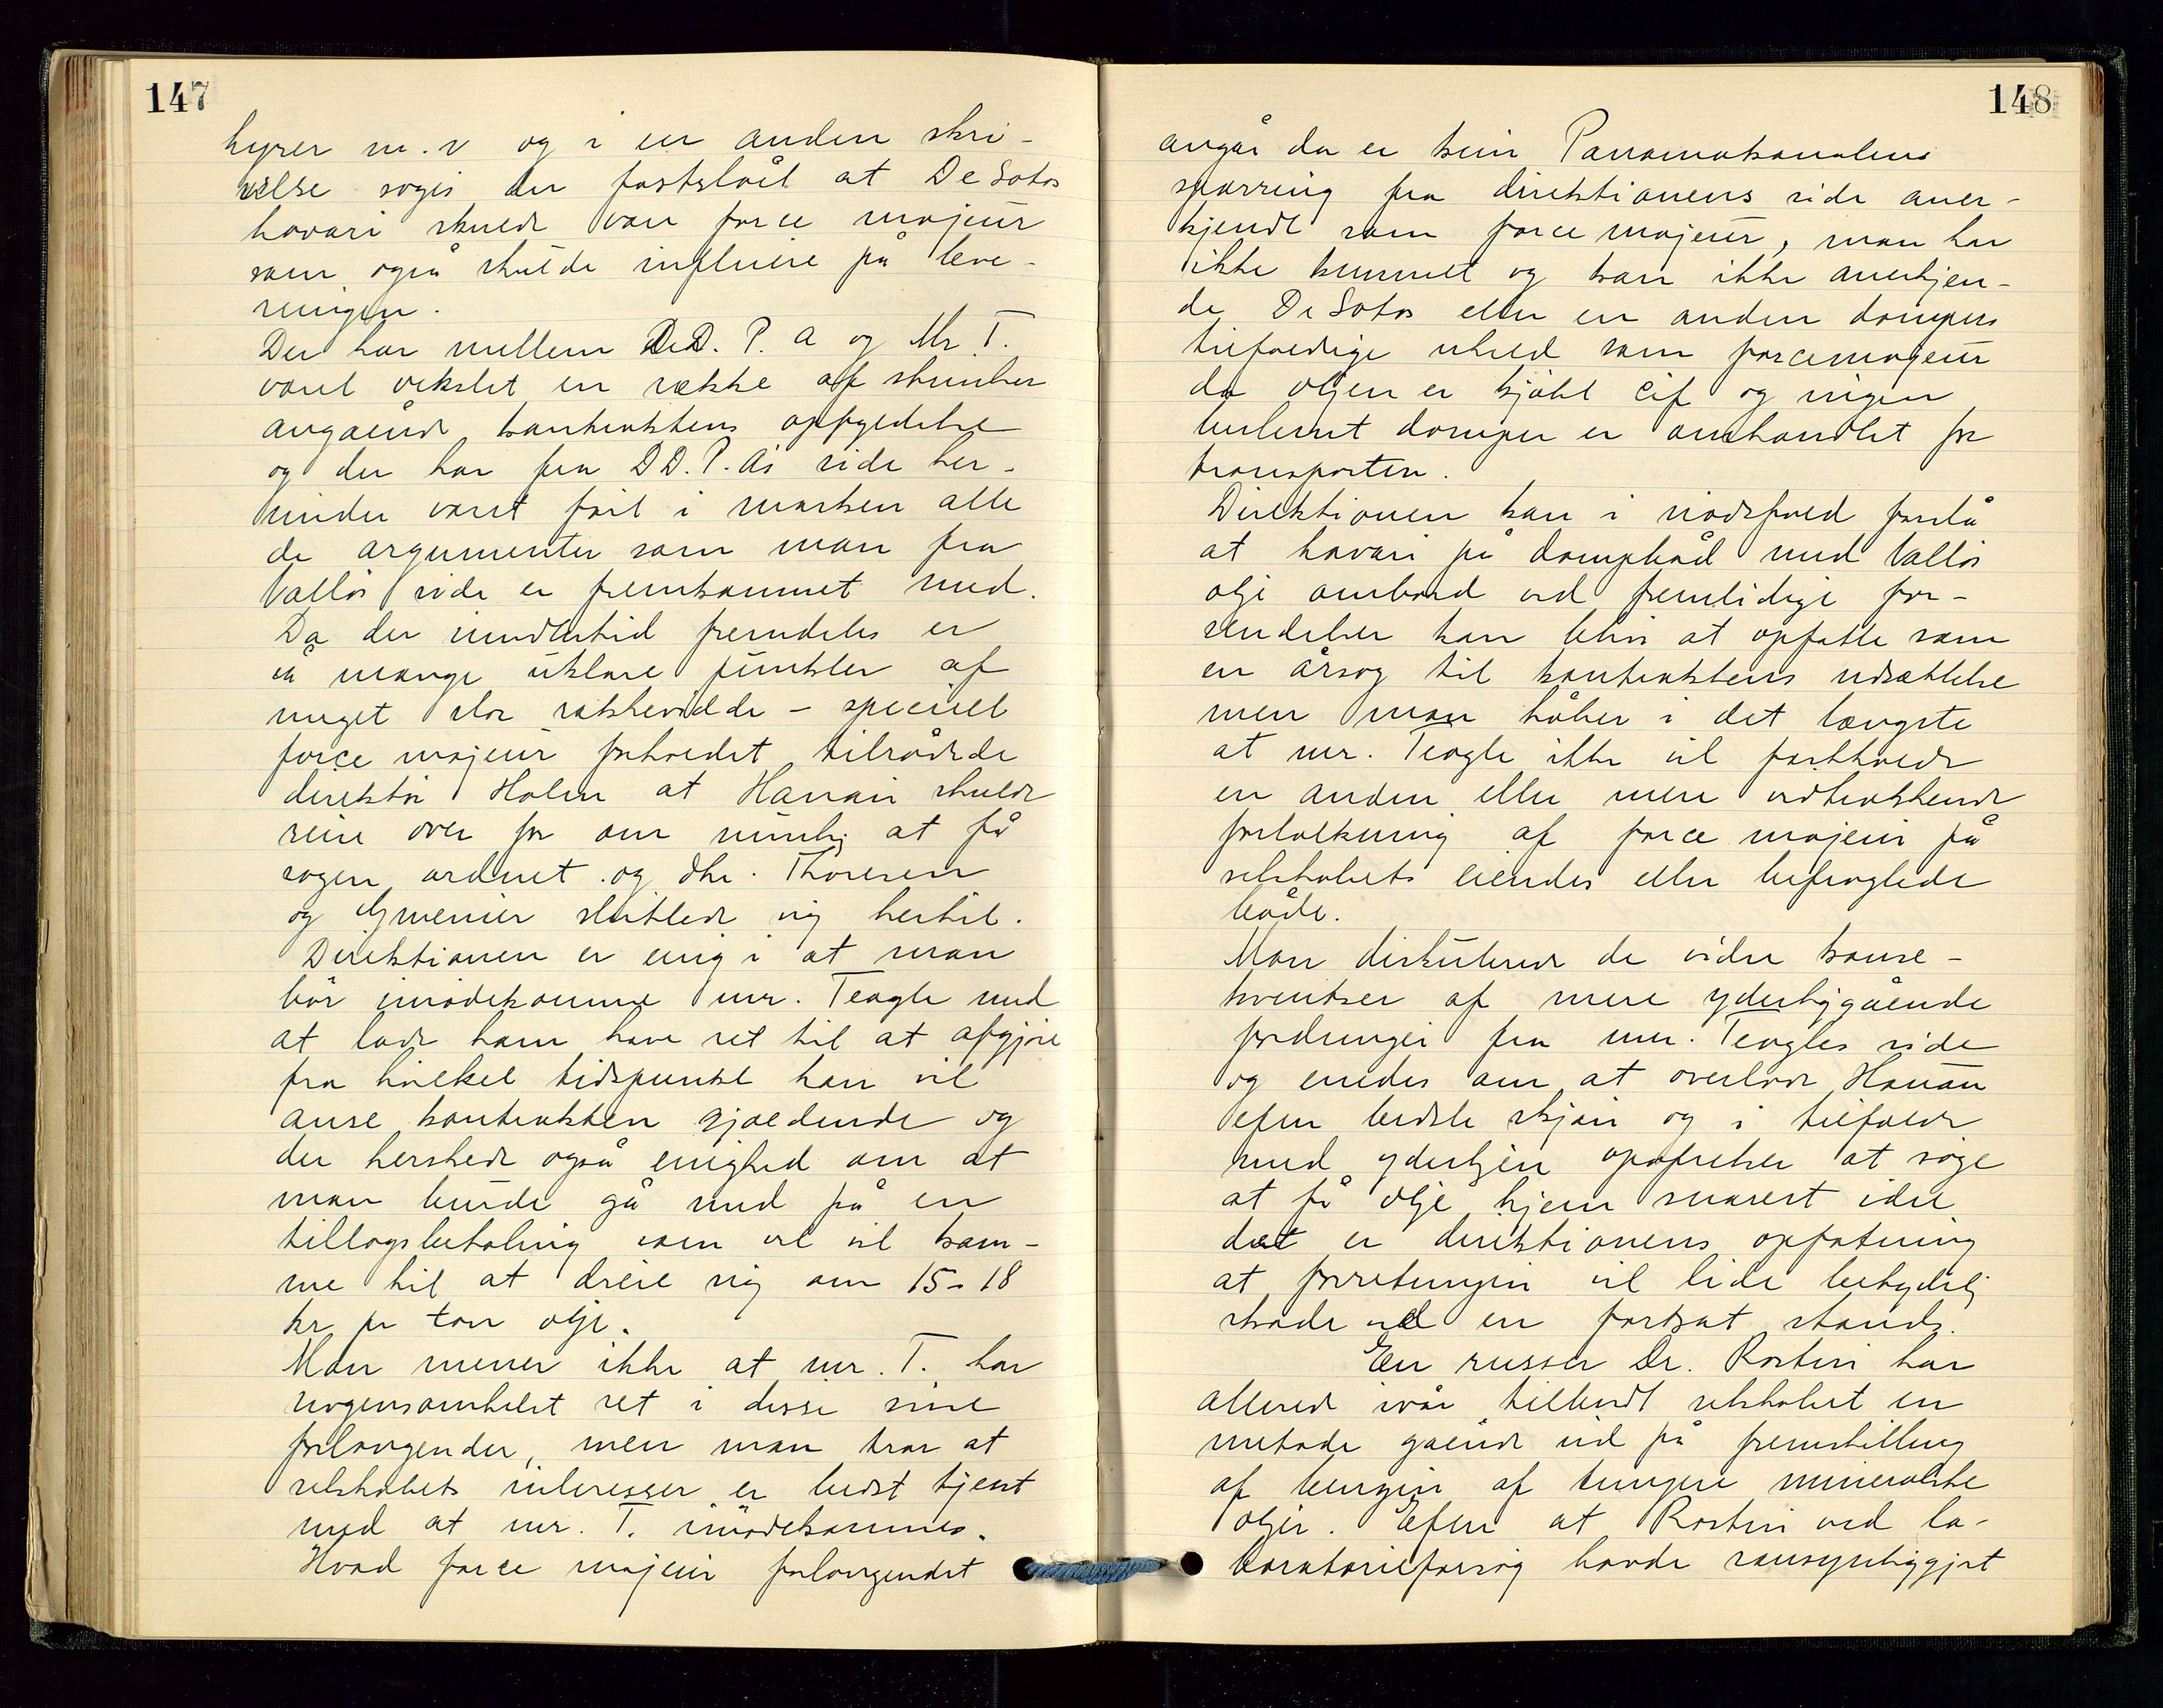 147
hyrer m.v og i en anden skri-
velse søges der fastslåёt at De Sotos
havari skulde være force majeur
som også skulde influere på leve-
ringen.
Der har mellem D.D.P.A og Mr T.
været vekslet en række af skrivelser
angående kontraktens opfyldelse
og der har fra D.D.P.A's side her-
under været ført i marken alle
de argumenter som man fra
Valløs side er fremkommet med.
Da der imidlertid fremdeles er
så mange uklare punkter af
meget stor rækkevidde - specielt
force majeur forholdet tilrådede
direktør Holm at Hanan skulde
reise over for om mulig at få
sagen ordnet og dhr. Thoresen
og Gmeiner sluttede sig hertil.
Direktionen er enig i at man
bør imødekomme mr. Teagle med
at lade ham have ret til at afgjøre
fra hvilket tidspunkt han vil
anse kontrakten gjældende og
der herskede også enighed om at
man burde gå med på en
tillægsbetaling som vel vil kom-
me til at dreie sig om 15-18
kr pr ton olje.
Man mener ikke at mr. T. har
nogensomhelst ret i disse sine
forlangender, men man tror at
selskabets interesser er bedst tjent
med at mr. T. imødekommes.
Hvad force majeur forlangendet
148
angår da er kun Panamakanalens
spærring fra direktionens side aner-
kjendt som force majeur, man har
ikke kunnet og kan ikke anerkjen-
de De Sotos eller en anden dampers
tilfældige uheld som force majeur
da oljen er kjøbt cif og ingen
bestemt damper er omhandlet for
transporten.
Direktionen kan i nødsfald forstå
at havari på dampbåd med Valløs
olje ombord ved fremtidige for-
sendelser kan blive at opfatte som
en årsag til kontraktens udsættelse
men man håber i det længste
at mr. Teagle ikke vil fastholde
en anden eller mere vidtrækkende
fortolkning af force majeur på
selskabets eiendes eller befragtede
både.
Man diskuterede de videre konse-
kventser af mere yderliggående
fordringer fra mr. Teagles side
og enedes om at overlade Hanan
efter bedste skjøn og i tilfælde
med yderligere opofrelser at søge
at få olje hjem snarest idet
det er direktionens opfatning
at forretningen vil lide betydelig
skade ved en fortsat stands.
En russer Dr. Rostin har
allerede ivår tilbudt selskabet en
metode gående ud på fremstilling
af benzin af tungere mineralske
oljer. Efter at Rostin ved la-
boratorieforsøg havde sansynliggjort